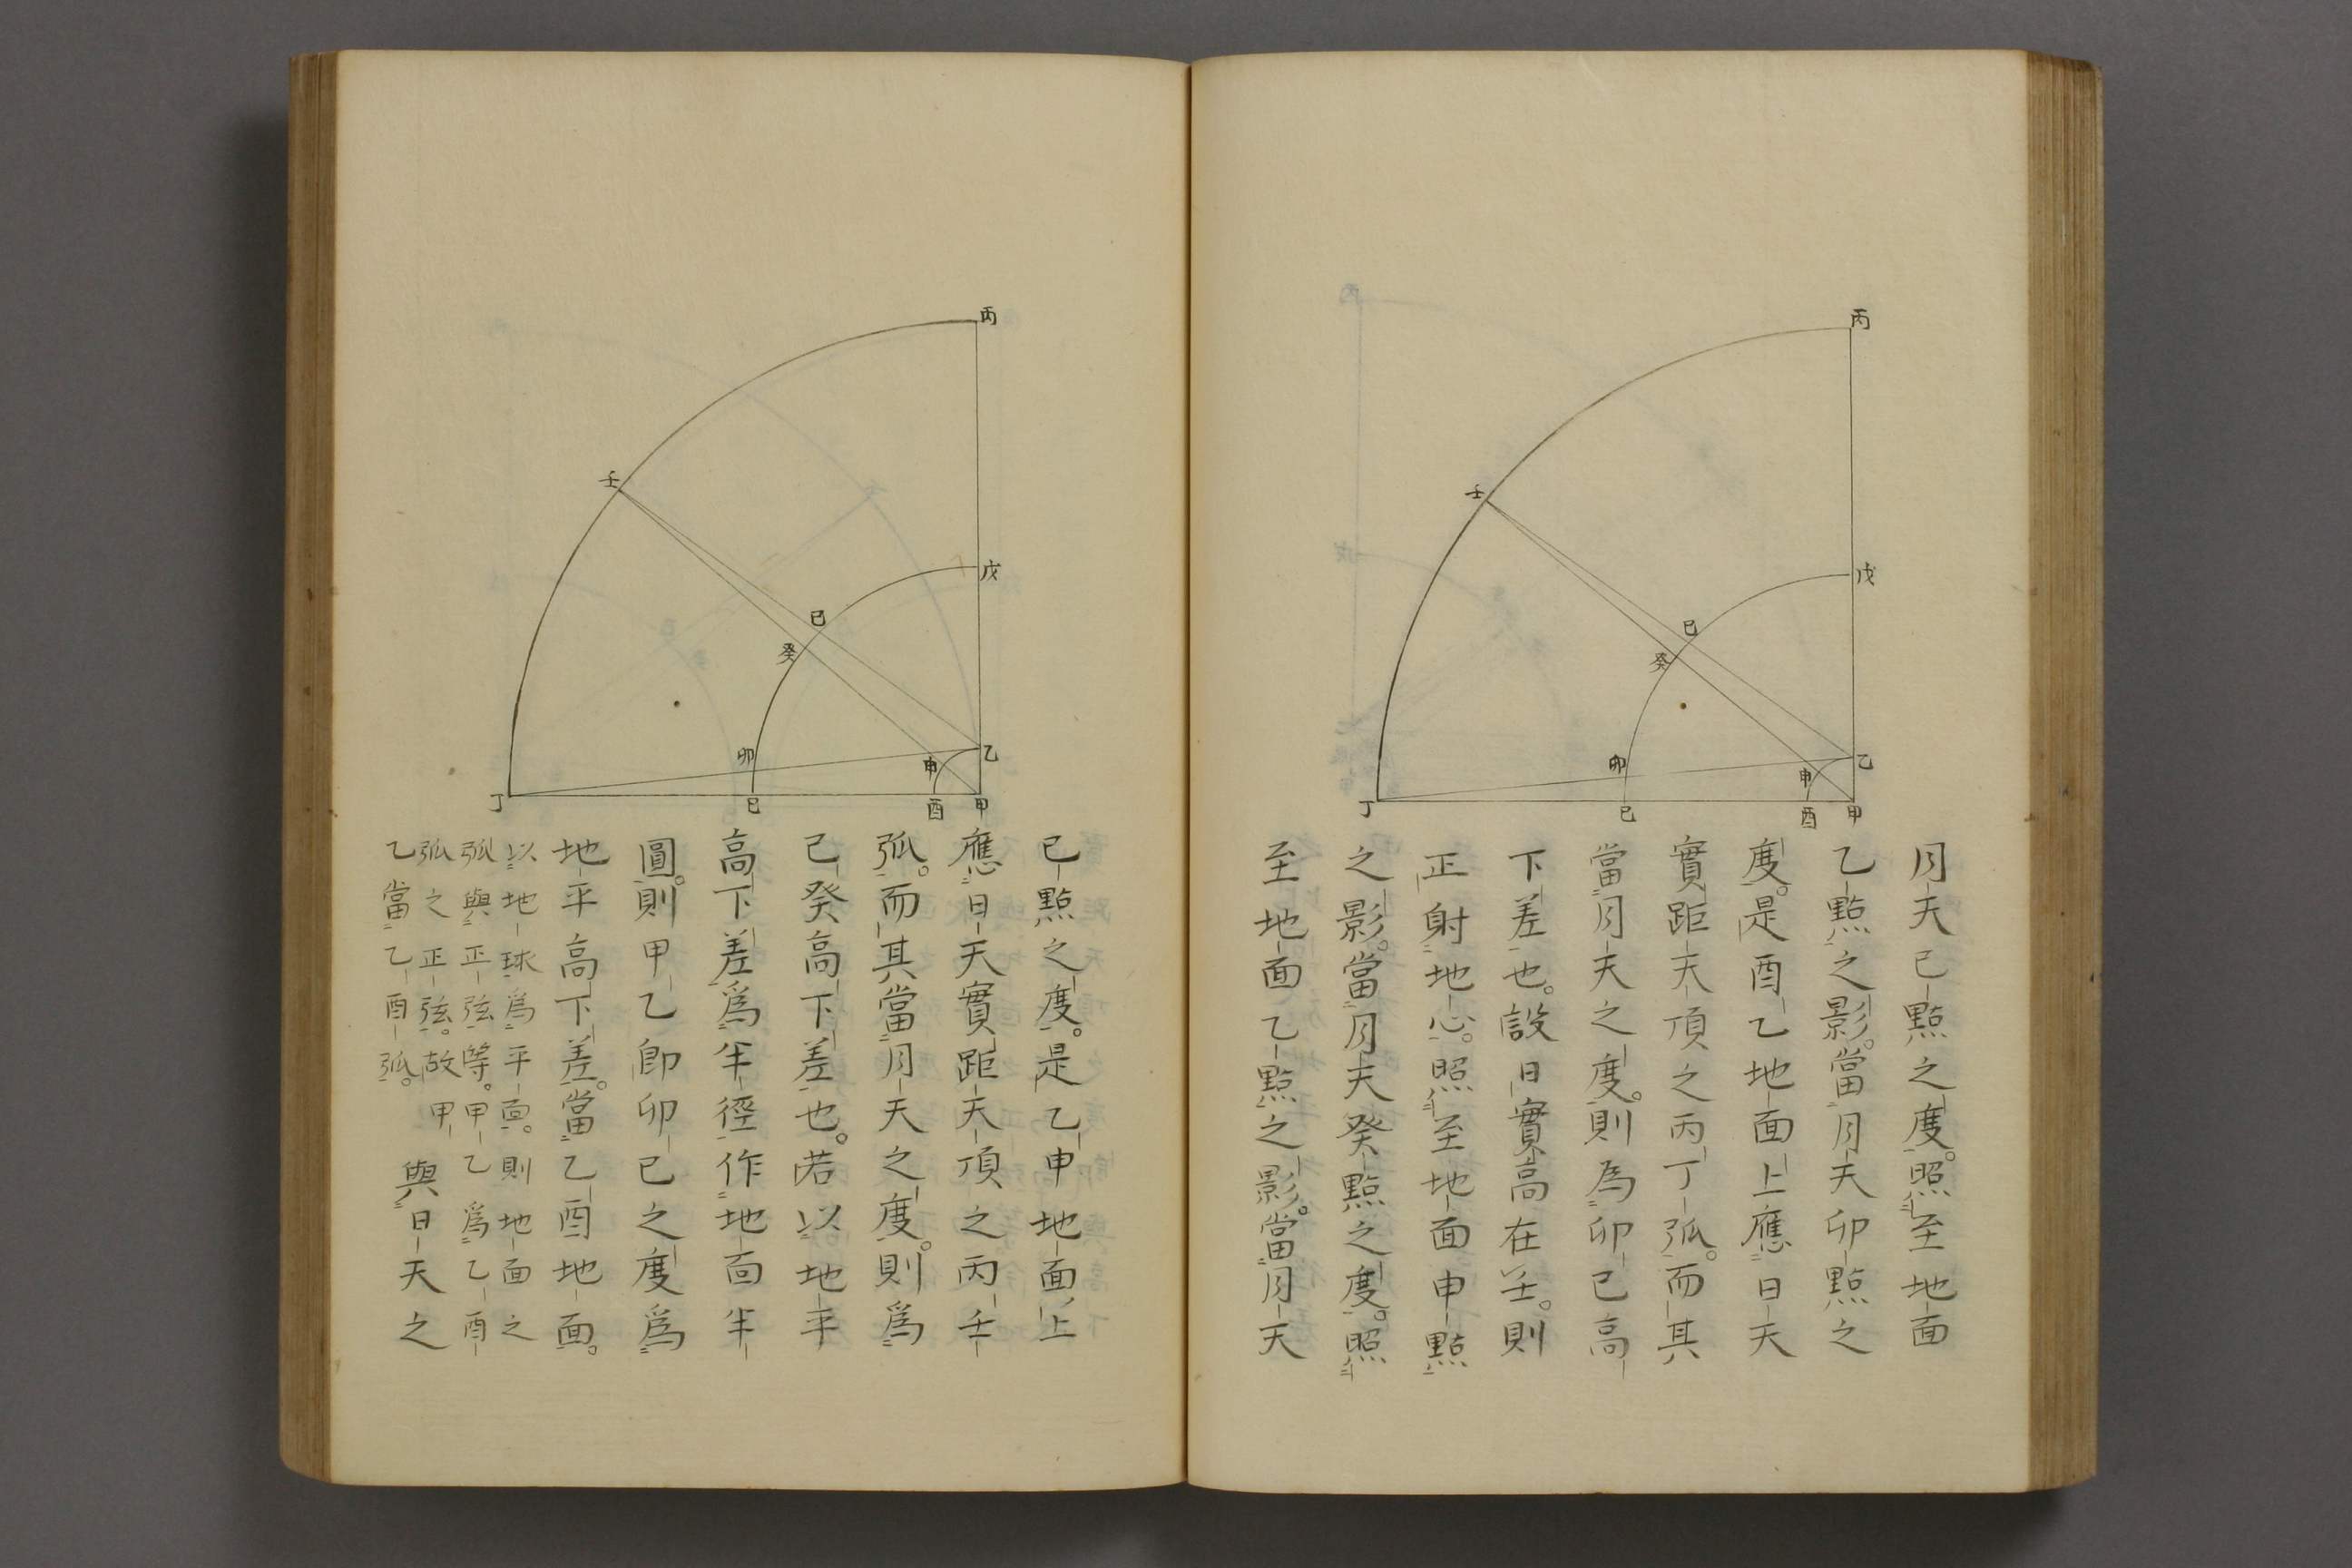 丙
壬
戊
巳
癸
乙
卯
申
丁
己
酉
甲
月天己點之度。照至地面
乙點之影。當月天卯點之
度。是酉乙地面上應日天
實距天頂之丙丁弧。而其
當月天之度。則為卯己高
下差也。設日實高在壬。則
正射地心。照至地面申點
之影。當月天癸點之度。照
至地面乙點之影。當月天
丙
壬
戊
巳
癸
乙
卯
申
丁
己
酉
甲
巳點之度。是乙申地面上
應日天實距天頂之丙壬
弧。而其當月天之度。則爲
己癸高下差也。若以地平
高下差爲半徑作地面半
圓。則甲乙卽卯己之度爲
地平高下差。當乙酉地面。
以地球爲平面。則地面之
弧與正弦等。甲乙爲乙酉
弧之正弦。故甲
乙當乙酉弧。
與日天之